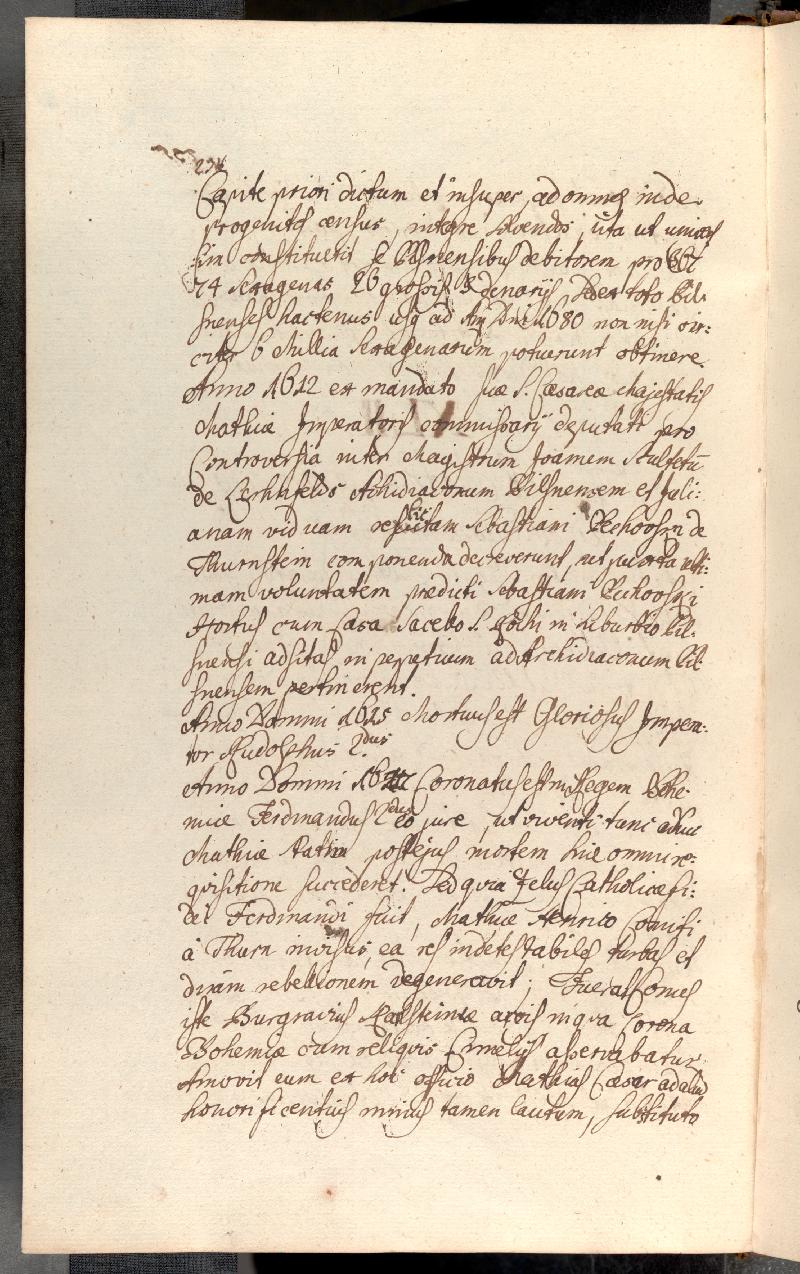 Capite priori dictum et insuper, ad omnes inde
progenitos census, integre solvendos, ita ut
sim constituerit se Pilsnensibus debitorem pro
74 sexagenas 26 grossis 3 denarijs, Sed ex toto Pil:
snenses hactenus usq ad An Dni 1680 non nisi cir:
citer 6 Millia sexagenarum potuerunt obtinere.
Anno 1612 ex mandato suæ S. Cæsareæ Majestatis
Mathiæ Imperatoris commissarij deputati pro
Controversia inter Magistrum Joannem Scultetū
de Archidiaconum Pilsnensem et Juli:
anam viduam relictam Sebastiani Pechovsky de
Thurnstein componenda decreverunt, ut juxta ulti:
mam voluntatem prædicti Sebastiani Pechovsky
Hortus cum Casa Sacello S. Rochi in suburbio Pil:
snensi adsitas in perpetuum ad Archidiaconum Pil:
snensem pertinerent.
Anno Domini 1615 Mortuus est Gloriosus Impera:
tor Rudolphus 2.dus
Anno Domini Coronatus est in Regem Bohe:
miæ Ferdinandus 2dus eo jure, ut viventi tunc adhuc
Mathiæ post ejus mortem sine omni re:
quisitione succederet. Sed quia Zelus Catholicæ fi:
dei Ferdinandi fuit, Mathiæ Henrico Comiti
à Thurn invisus, ea res in detestabiles turbas et
diram rebellionem degeneravit; Fuerat Comes
iste Burgravius Karlsteinæ arcis in qua Corona
Bohemiæ cum reliquis Cimelijs asservabatur
Amovit eum ex hoc officio Mathias Cæsar ad aliud
honorificentius minus tamen lautum, substituto